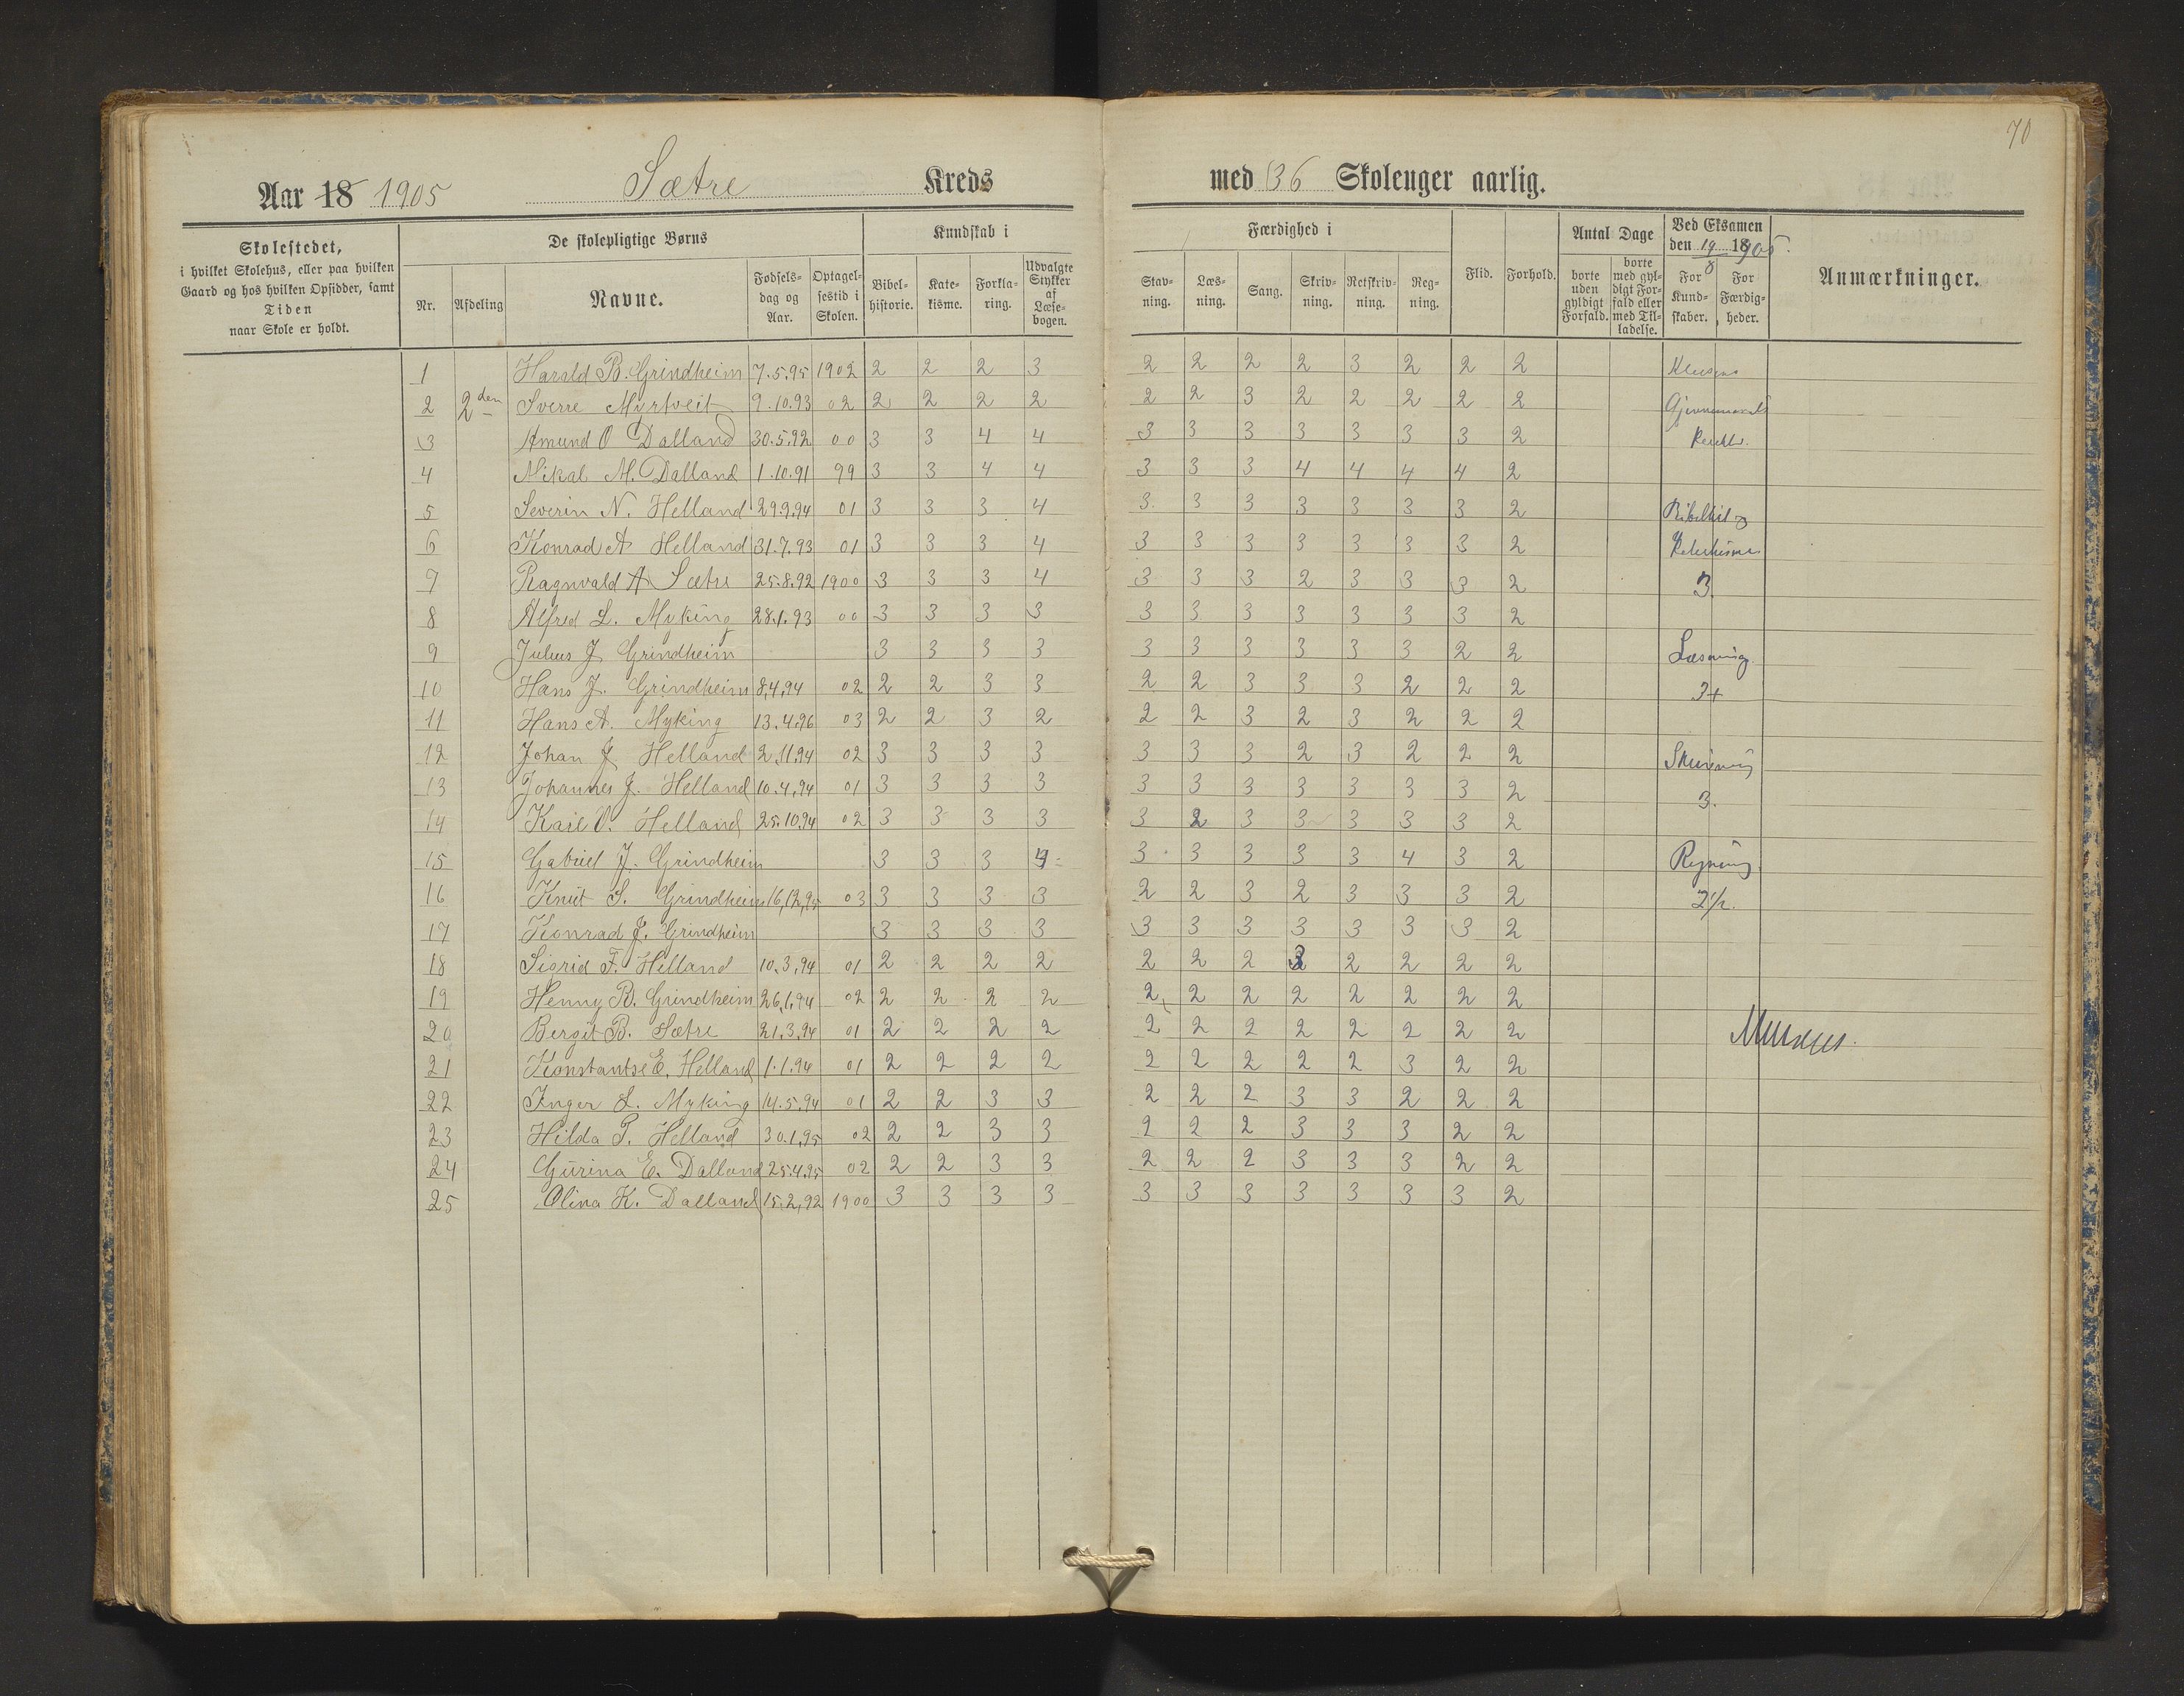 70
Aar 18 1905 Sætre Kreds med 36 Skoleuger aarlig.
Skolestedet, i hvilket Skolehus, eller paa hvilken Gaard og hos hvilken Opsidder, samt Tiden naar Skole er holdt.
De skolepligtige Børns
Nr. Afdeling Navne. Fødsels- dag og Aar. Optagel- sestid i Skolen.
Kundskab i
Bibel- historie. Kate- kisme. Forkla- ring. Udvalgte Stykker af Læse- bogen.
Færdighed i
Stav- ning. Læs- ning. Sang. Skriv- ning. Retskriv- ning. Reg- ning. Flid. Forhold.
Antal Dage
borte uden gyldigt Forfald. borte med gyl- digt For- fald eller med Til- ladelse.
Ved Eksamen den 19/8 18905.
For Kund- skaber. For Færdig- heder.
Anmærkninger.
1 Harald B. Grindheim 7.5.95 1902 2 2 2 3 2 2 2 2 3 2 2 2 Klassens
2 2den Sverre Myrtveit 9.10.93 02 2 2 2 2 2 2 3 2 2 2 2 2
3 Amund O Dalland 30.5.92 00 3 3 4 4 3 3 3 3 3 3 3 2
4 Mikal M. Dalland 1.10.91 99 3 3 4 4 3 3 3 4 4 4 4 2
5 Severin N. Helland 29.9.94 01 3 3 3 4 3 3 3 3 3 3 3 2 Bibelhist og
6 Konrad A Helland 31.7.93 01 3 3 3 4 3 3 3 3 3 3 3 2
7 Ragnvald A Sætre 25.8.92 1900 3 3 3 4 3 3 3 2 3 3 3 2 3.
8 Alfred L. Myking 28.1.93 00 3 3 3 3 3 3 3 3 3 3 3 2
9 Julius J Grindheim 3 3 3 3 3 3 3 3 3 3 2 2 Læsning
10 Hans J. Grindheim 8,4,94 02 2 2 3 3 2 2 3 3 3 2 2 2 3+
11 Hans A. Myking 13.4.96 03 2 2 3 2 2 2 3 2 3 2 2 2
12 Johan J Helland 2.11.94 02 3 3 3 3 3 3 3 2 3 2 2 2 Skrivning
13 Johannes J. Helland 10.4.94 01 3 3 3 3 3 3 3 3 3 3 3 2 3.
14 Karl O. Helland 25.10.94 02 3 3 3 3 3 2 3 3 3 3 3 2
15 Gabriel J. Grindheim 3 3 3 4 3 3 3 3 3 4 3 2 Regning
16 Knut S. Grindheim 16,12,95 03 3 3 3 3 2 2 3 2 3 3 3 2 2½.
17 Konrad J. Grindheim 3 3 3 3 3 3 3 3 3 3 3 2
18 Sigrid F. Helland 10.3.94 01 2 2 2 2 2 2 2 3 2 2 2 2
19 Henny B. Grindheim 26.1.94 02 2 2 2 2 2 2 2 2 2 2 2 2
20 Bergit B. Sætre 21.3.94 01 2 2 2 2 2 2 2 2 2 2 2 2
21 Konstantse E. Helland 1.1.94 01 2 2 2 2 2 2 2 2 2 3 2 2
22 Inger L. Myking 14.5.94 01 2 2 3 3 2 2 2 3 3 2 2 2
23 Hilda P. Helland 30.1.95 02 2 2 3 3 2 2 2 3 3 3 2 2
24 Gurina E. Dalland 25.4.95 02 2 2 3 3 2 2 2 3 3 3 2 2
25 Olina K. Dalland 15.2,92 1900 3 3 3 3 3 3 3 3 3 3 3 2